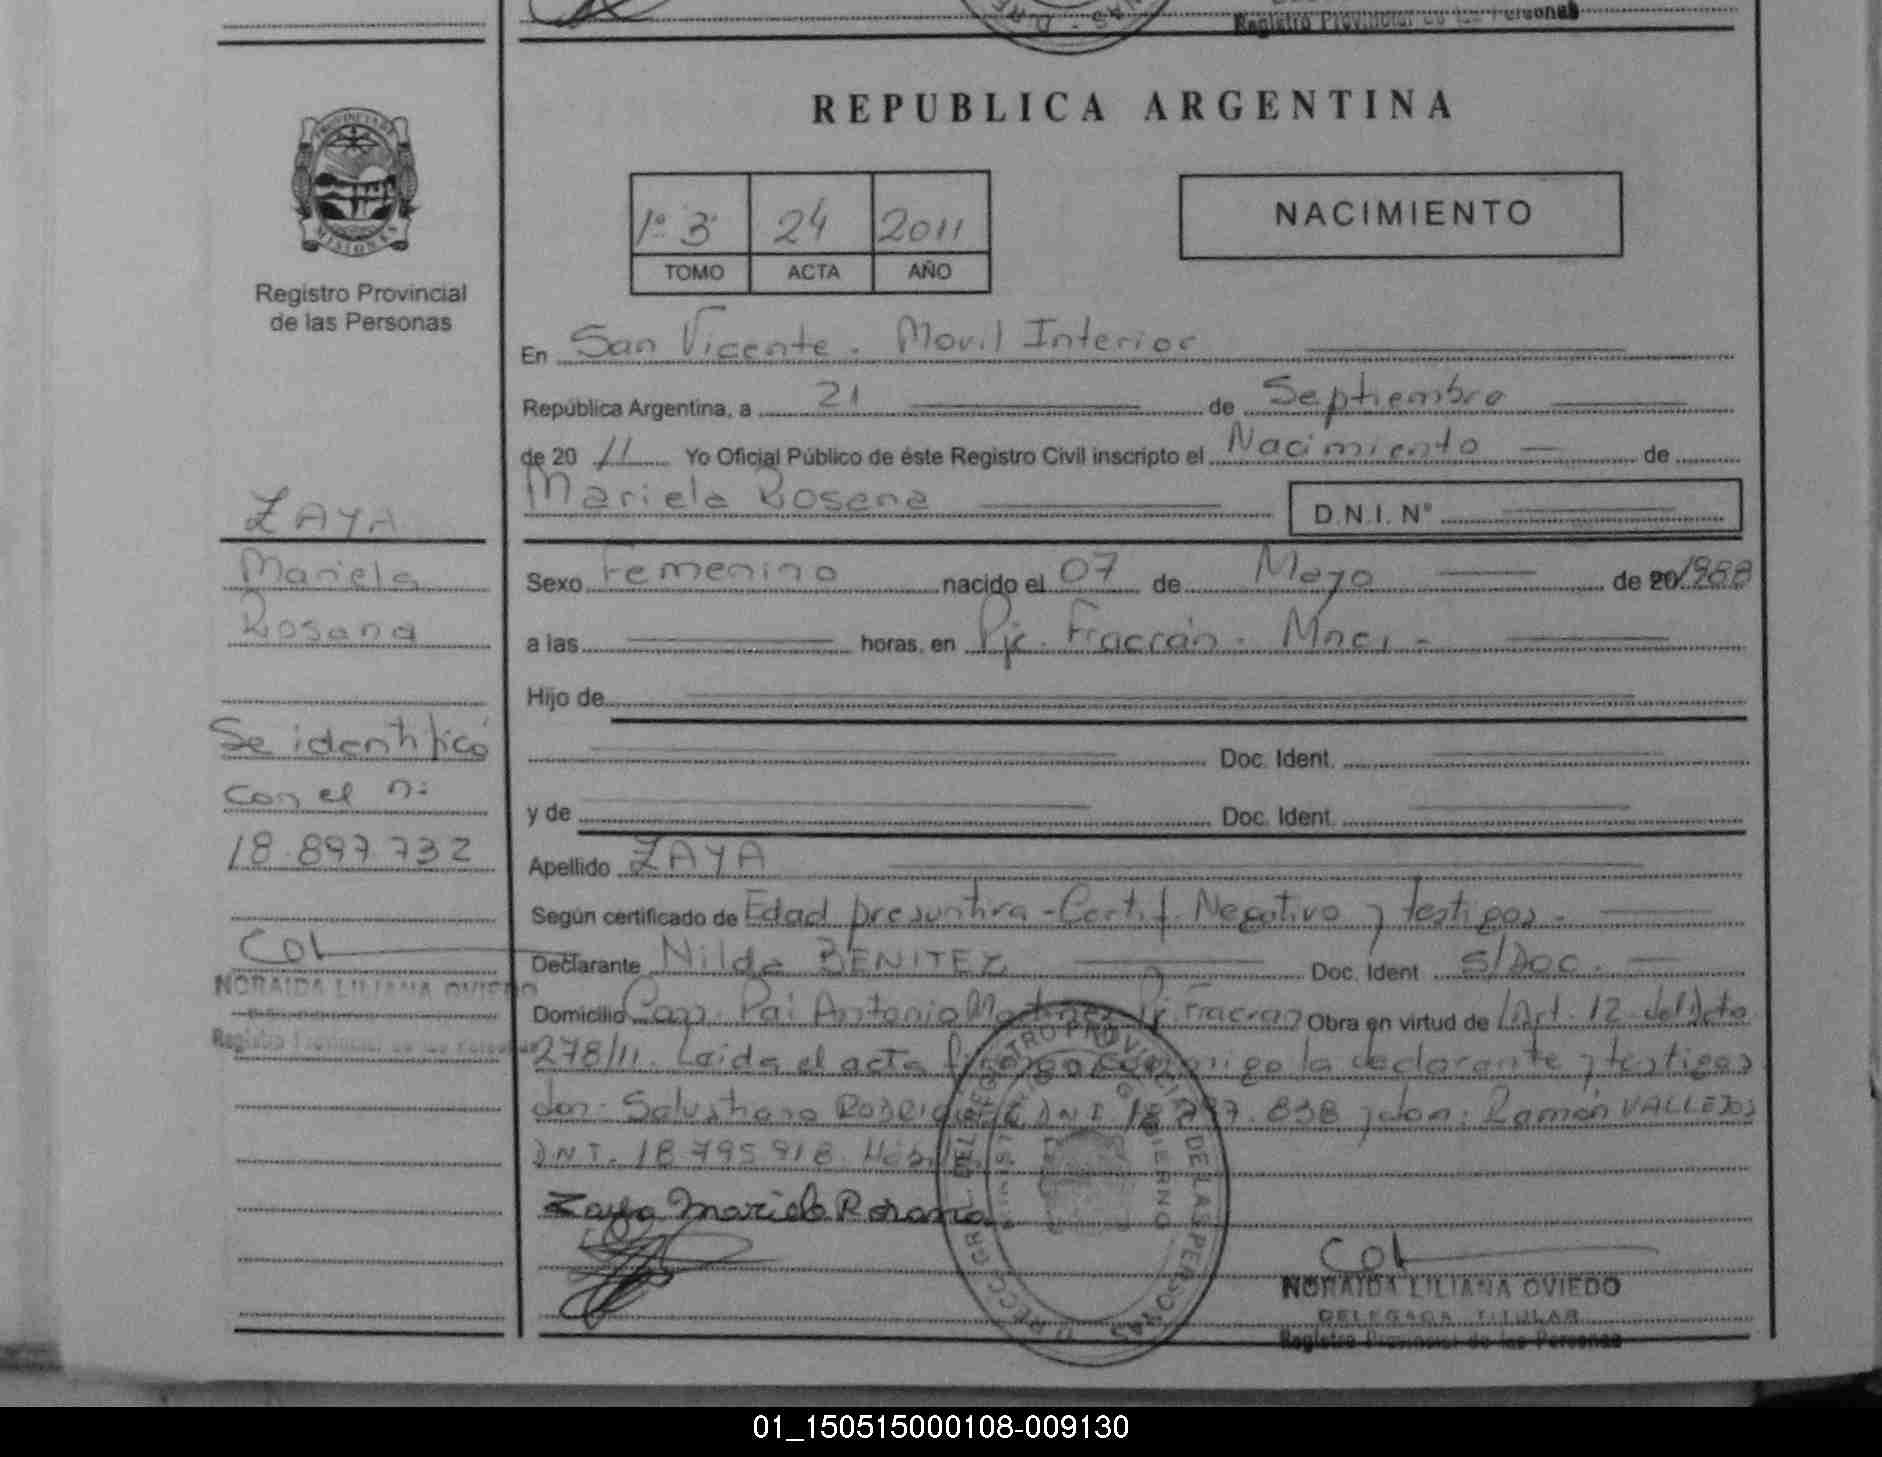 Registro Provincial de las Personas
REPUBLICA ARGENTINA
PROVINCIA DE
MISIONES
Registro Provincial
de las Personas
1º 3 24 2011
TOMO ACTA AÑO
NACIMIENTO
En San Vicente. Movil Interior
República Argentina, a 21 de Septiembre
de 20 11 Yo Oficial Público de éste Registro Civil inscripto el Nacimiento de
Mariela Rosana D.N.I. Nº
Sexo Femenino nacido el 07 de Mayo de 20 1988
a las horas, en Pje. Fracrán. Mnes.
Hijo de
Doc. Ident.
y de Doc. Ident.
Apellido ZAYA
Según certificado de Edad presuntiva - Certif. Negativo y testigos.
Declarante Nilda BENITEZ Doc. Ident S/Doc.
Domicilio Com. Pai Antonio Martinez Pje. Fracran Obra en virtud de Art. 12 del Dcto
278/11. Leída el acta firman conmigo la declarante y testigos
don: Salustiano RODRIGUEZ DNI 18.797.838 y don: Ramón VALLEJOS
DNI. 18.795.918. Hábiles
Zaya Mariela Rosana
NORAIDA LILIANA OVIEDO
DELEGADA TITULAR
Registro Provincial de las Personas
ZAYA
Mariela
Rosana
Se identificó
con el nº
18.897.732
NORAIDA LILIANA OVIEDO
Registro Provincial de las Personas
01_150515000108-009130